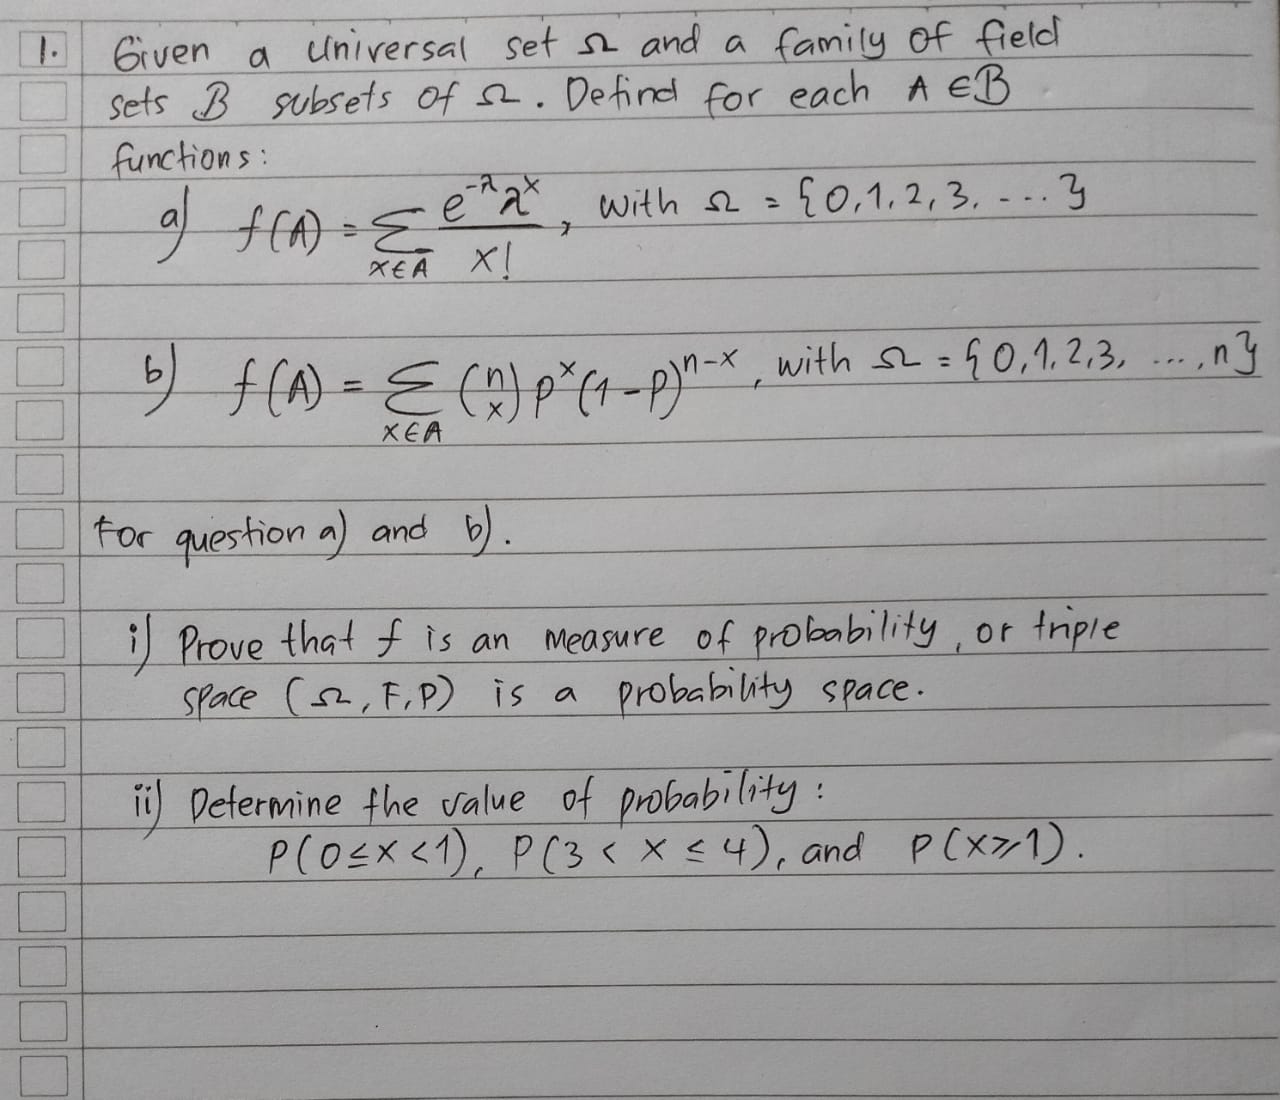 1. Given a universal set Ω and a family of field
sets B subsets of Ω. Defind for each A ∈ B
functions:
a) f(A) = Σ_{x∈A} e^{-λ} λ^x / x! , with Ω = {0,1,2,3, ....}
b) f(A) = Σ_{x∈A} (n x) p^x (1-p)^{n-x}, with Ω = {0,1,2,3, ..., n}
For question a) and b).
i) Prove that f is an measure of probability, or triple
space (Ω, F, P) is a probability space.
ii) Determine the value of probability:
P(0≤x<1), P(3 < x ≤ 4), and P(x≥1).